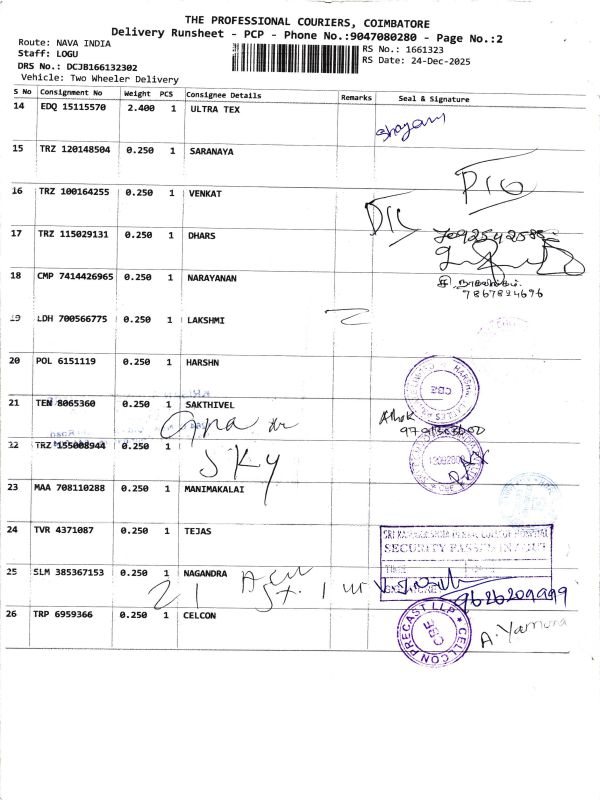 THE PROFESSIONAL COURIERS, COIMBATORE
Delivery Runsheet - PCP - Phone No.:9047080280 - Page No.:2
Route: NAVA INDIA
Staff: LOGU
DRS No.: DCJB166132302
Vehicle: Two Wheeler Delivery
RS No.: 1661323
RS Date: 24-Dec-2025
S No Consignment No Weight PCS Consignee Details Remarks Seal & Signature
14 EDQ 15115570 2.400 1 ULTRA TEX
15 TRZ 120148504 0.250 1 SARANAYA
16 TRZ 100164255 0.250 1 VENKAT
17 TRZ 115029131 0.250 1 DHARS
18 CMP 7414426965 0.250 1 NARAYANAN
9867824696
19 LDH 700566775 0.250 1 LAKSHMI
20 POL 6151119 0.250 1 HARSHN
CBE
21 TEN 8065360 0.250 1 SAKTHIVEL
Ashok
22 TRZ 155008944 0.250 1
SKY
23 MAA 708110288 0.250 1 MANIMAKALAI
24 TVR 4371087 0.250 1 TEJAS
SECURITY
TIME
25 SLM 385367153 0.250 1 NAGANDRA
21
9626209999
26 TRP 6959366 0.250 1 CELCON
CELL CON PRECAST LLP
CBE
A. Yamuna